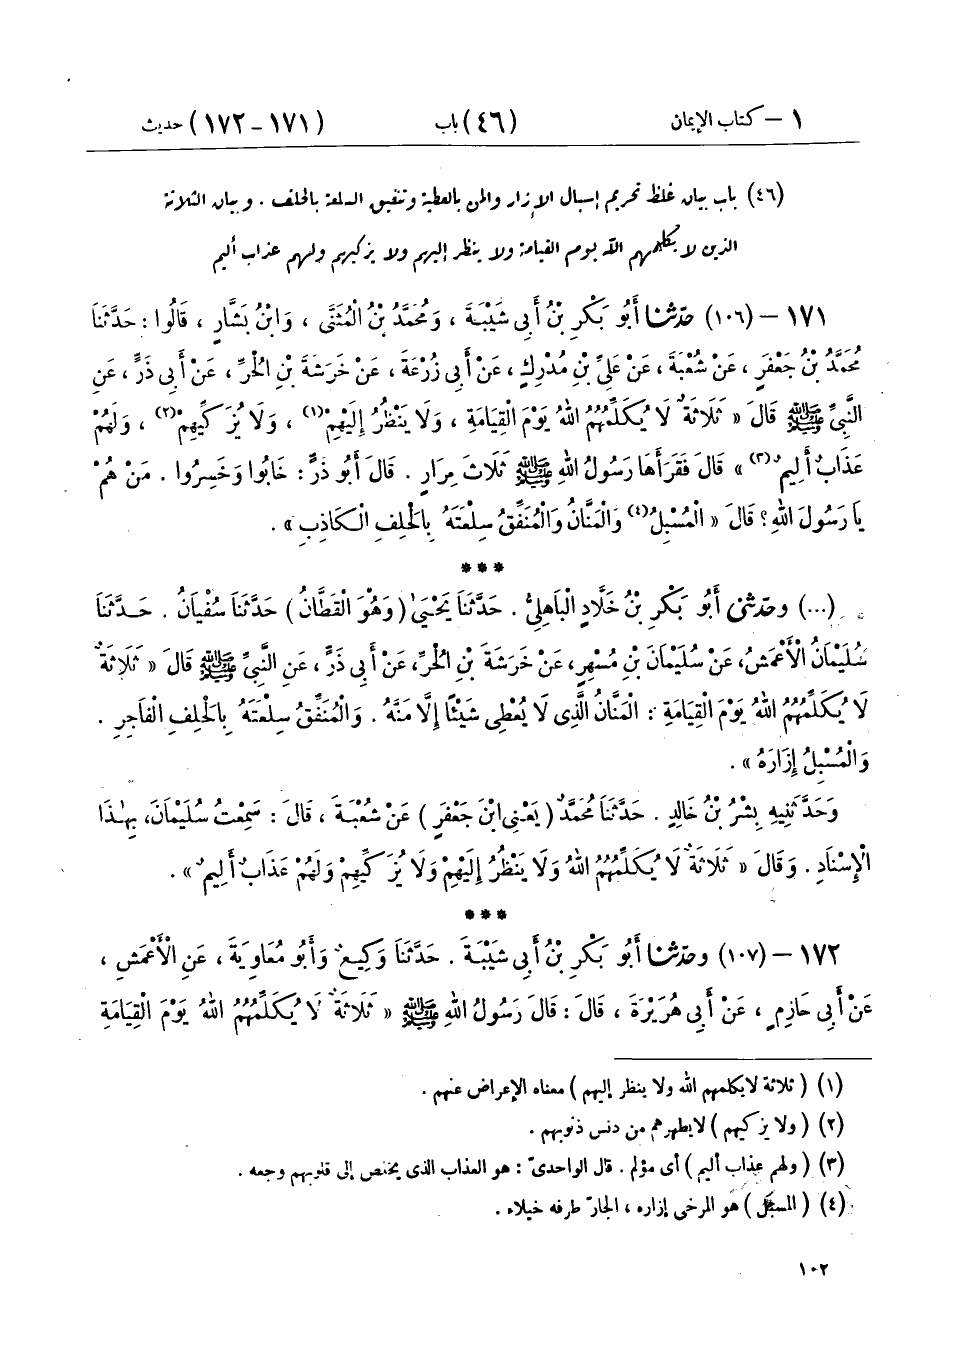 ١ – كتاب الإيمان (٤٦) باب (١٧١–١٧٢) حديث
(٤٦) باب بيان غلظ تحريم إسبال الإزار والمن بالعطية وتنفيق السلعة بالحلف . وبيان الثلاثة
الذين لا يكلمهم الله يوم القيامة ولا ينظر إليهم ولا يزكيهم ولهم عذاب أليم
١٧١ – (١٠٦) حدّثنا أَبُو بَكْرِ بْنُ أَبِي شَيْبَةَ ، وَمُحَمَّدُ بْنُ الْمُثَنَّى ، وَابْنُ بَشَّارٍ ، قَالُوا : حَدَّثَنَا
مُحَمَّدُ بْنُ جَعْفَرٍ ، عَنْ شُعْبَةَ ، عَنْ عَلِيِّ بْنِ مُدْرِكٍ ، عَنْ أَبِي زُرْعَةَ ، عَنْ خَرَشَةَ بْنِ الْحُرِّ ، عَنْ أَبِي ذَرٍّ ، عَنِ
النَّبِيِّ ﷺ قَالَ « ثَلَاثَةٌ لَا يُكَلِّمُهُمُ اللهُ يَوْمَ الْقِيَامَةِ ، وَلَا يَنْظُرُ إِلَيْهِمْ(١) ، وَلَا يُزَكِّيهِمْ(٢) ، وَلَهُمْ
عَذَابٌ أَلِيمٌ(٣) » قَالَ فَقَرَأَهَا رَسُولُ اللهِ ﷺ ثَلَاثَ مِرَارٍ . قَالَ أَبُو ذَرٍّ : خَابُوا وَخَسِرُوا . مَنْ هُمْ
يَا رَسُولَ اللهِ ؟ قَالَ « الْمُسْبِلُ(٤) وَالْمَنَّانُ وَالْمُنَفِّقُ سِلْعَتَهُ بِالْحَلِفِ الْكَاذِبِ » .
***
(...) وحدّثني أَبُو بَكْرِ بْنُ خَلَّادٍ الْبَاهِلِيُّ . حَدَّثَنَا يَحْيَىٰ ( وَهُوَ الْقَطَّانُ ) حَدَّثَنَا سُفْيَانُ . حَدَّثَنَا
سُلَيْمَانُ الْأَعْمَشُ ، عَنْ سُلَيْمَانَ بْنِ مُسْهِرٍ ، عَنْ خَرَشَةَ بْنِ الْحُرِّ ، عَنْ أَبِي ذَرٍّ ، عَنِ النَّبِيِّ ﷺ قَالَ « ثَلَاثَةٌ
لَا يُكَلِّمُهُمُ اللهُ يَوْمَ الْقِيَامَةِ : الْمَنَّانُ الَّذِي لَا يُعْطِي شَيْئًا إِلَّا مَنَّهُ . وَالْمُنَفِّقُ سِلْعَتَهُ بِالْحَلِفِ الْفَاجِرِ .
وَالْمُسْبِلُ إِزَارَهُ » .
وَحَدَّثَنِيهِ بِشْرُ بْنُ خَالِدٍ . حَدَّثَنَا مُحَمَّدٌ ( يَعْنِي ابْنَ جَعْفَرٍ ) عَنْ شُعْبَةَ ، قَالَ : سَمِعْتُ سُلَيْمَانَ ، بِهٰذَا
الْإِسْنَادِ . وَقَالَ « ثَلَاثَةٌ لَا يُكَلِّمُهُمُ اللهُ وَلَا يَنْظُرُ إِلَيْهِمْ وَلَا يُزَكِّيهِمْ وَلَهُمْ عَذَابٌ أَلِيمٌ » .
***
١٧٢ – (١٠٧) وحدّثنا أَبُو بَكْرِ بْنُ أَبِي شَيْبَةَ . حَدَّثَنَا وَكِيعٌ وَأَبُو مُعَاوِيَةَ ، عَنِ الْأَعْمَشِ ،
عَنْ أَبِي حَازِمٍ ، عَنْ أَبِي هُرَيْرَةَ ، قَالَ : قَالَ رَسُولُ اللهِ ﷺ « ثَلَاثَةٌ لَا يُكَلِّمُهُمُ اللهُ يَوْمَ الْقِيَامَةِ
(١) ( ثلاثة لايكلمهم الله ولا ينظر إليهم ) معناه الإعراض عنهم .
(٢) ( ولا يزكيهم ) لايطهرهم من دنس ذنوبهم .
(٣) ( ولهم عذاب أليم ) أى مؤلم . قال الواحدىّ : هو العذاب الذى يخلص إلى قلوبهم وجعه .
(٤) ( المسبل ) هو المرخى إزاره ، الجارّ طرفه خيلاء .
١٠٢